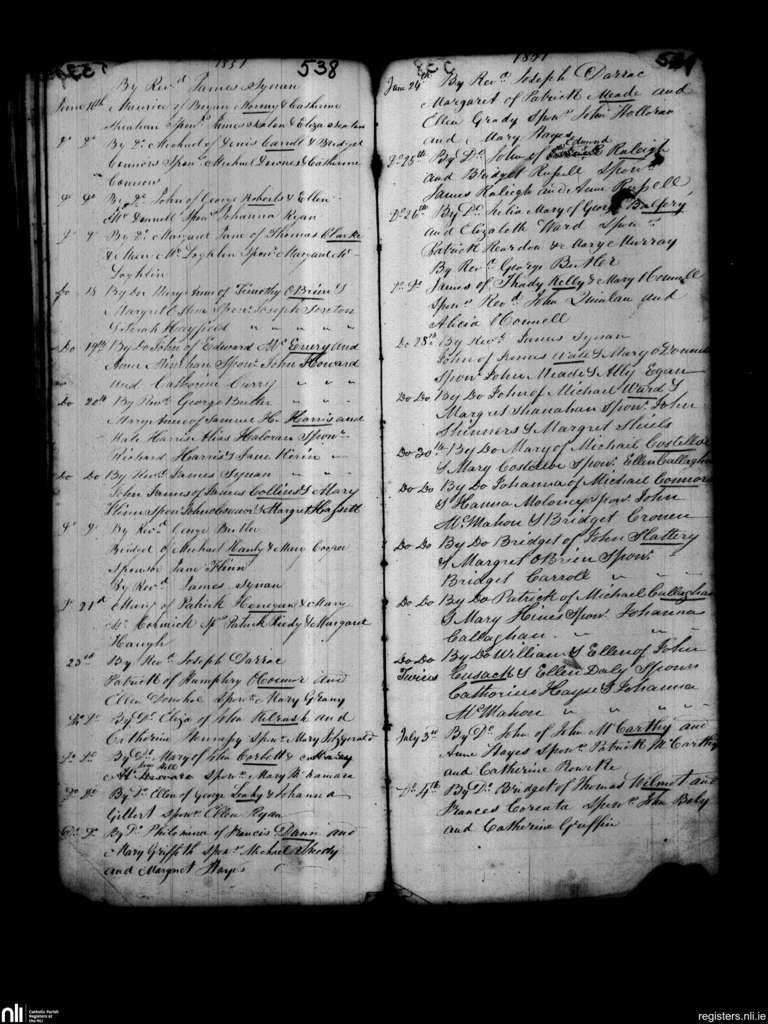 1851
538
By Revd James Synan
June 18th Maurice of Bryan Normy & Catherine
Sponrs James Sexton & Eliza Sexton
Do Do By Do Michael of Denis Carroll & Bridget
Connors Sponrs Michael Downes & Catherine
Connors
Do Do By Do John of George Roberts & Ellen
Mc Donnell Sponr Johanna Ryan
Do Do By Do Margaret Jane of Thomas Clarke
& Mary Mc Loghlin Sponr Margaret Mc
Loghlin
Do 18 By Do Maryanne of Timothy O Brien &
Margret Sponrs Joseph Sexton
& Sarah Hayfield " " " "
Do 19th By Do John of Edward Mc Enery and
Anne Minihan Sponr John Howard
and Catherine Carry " " "
Do 20th By Revd George Butler " "
Maryanne of Samuel H. Harris and
Kate Harris Alias Haloran Sponrs
Richard Harris & Jane "
Do Do By Revd James Synan " "
John James of James Collins & Mary
Sponrs & Margret Hassett
Do Do By Revd George Butler
Bridget of Michael Hanly & Mary
Sponsor Jane
By Revd James Synan
Do 21st of Patrick Henigan & Mary
Mc Cormick Sprs Patrick & Margaret
Haugh
23rd By Revd Joseph Darrac
Patrick of Humphry OConnor and
Ellen Donohoe Sponr Mary Grany
Do Do By Do Eliza of John and
Catherine Sponr Mary Fitzgerald
Do Do By Do Mary of John Corbett &
Sponr Mary Mc Namara
Do Do By Do Ellen of George & Johanna
Gilbert Sponr Ellen Ryan
Do Do By Do Philomina of Francis Dann and
Mary Griffith Sponrs Michael Sheedy
and Margret Hayes
1851
June 24th By Revd Joseph Darrac
Margaret of Patrick Meade and
Ellen Grady Sponrs John Holloran
and Mary Hayes
Edmund
Do 25th By Do John of Raleigh
and Bridget Russell Sponrs
James Raleigh and Anne Russell
Do 26th By Do Julia Mary of George
and Elizabeth Ward Sponrs
Patrick Reardon & Mary Murray
By Revd George Butler
Do Do James of Thady Kelly & Mary OConnell
Sponrs Revd John Quinlan and
Alicia OConnell
Do 28th By Revd James Synan
John of James & Mary
Sponrs John Meade & Ally Egan
Do Do By Do John of Michael Ward &
Margret Shanahan Sponrs John
Skinners & Margret Shiels
Do 30th By Do Mary of Michael Costelloe
& Mary Sponr Ellen Callaghan
Do Do By Do Johanna of Michael Connors
& Hanna Moloney Sponrs John
McMahon & Bridget Cronin
Do Do By Do Bridget of John Slattery
& Margret OBrien Sponr
Bridget Carroll " "
Do Do By Do Patrick of Michael Callaghan
& Mary Hines Sponr Johanna
Callaghan " "
Do Do By Do William & Ellen of John
Twins Cusack & Ellen Daly Sponrs
Catherine Hayes & Johanna
McMahon " " " "
July 3rd By Do John of John McCarthy and
Anne Hayes Sponrs Patrick McCarthy
and Catherine Rourke
Do 4th By Do Bridget of Thomas Wilmot and
Frances Sponrs John
and Catherine Griffin
nli
Catholic Parish
Registers at
the NLI
registers.nli.ie